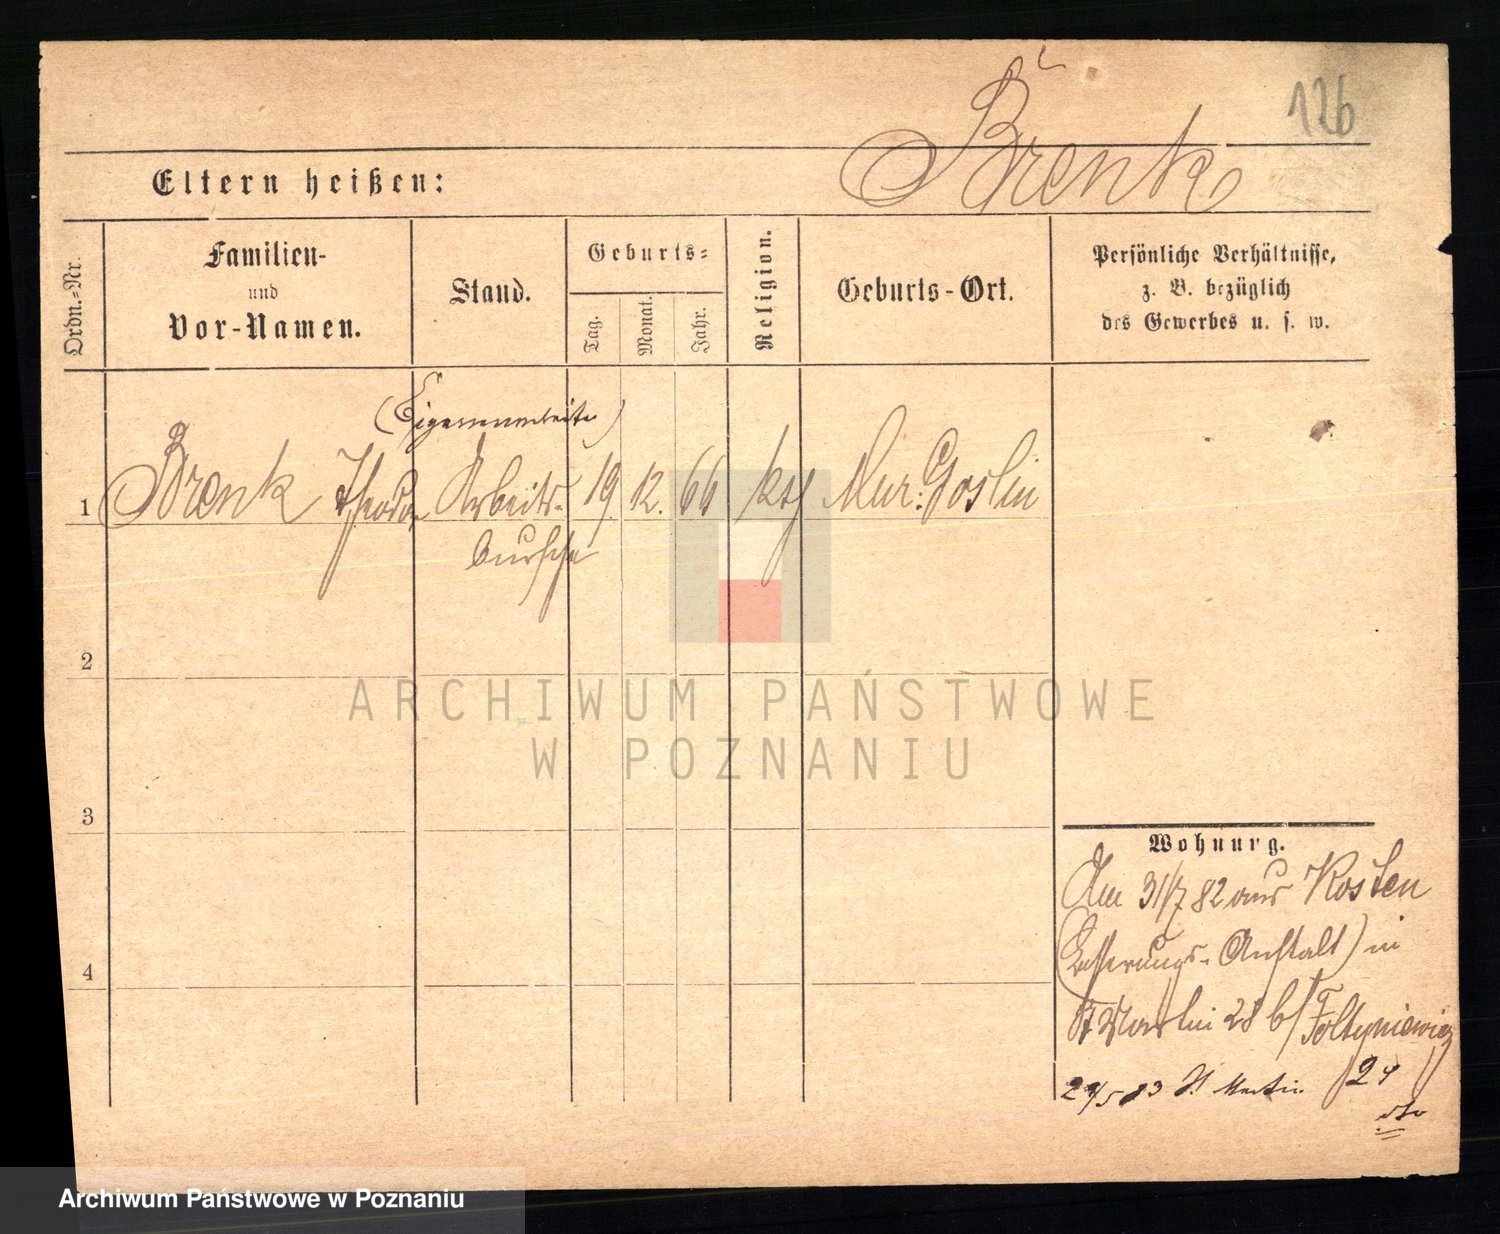 126
Brenk
Eltern heißen:
Ordn.=Nr.
Familien-
und
Vor-Namen.
Stand.
Geburts=
Tag.
Monat.
Jahr.
Religion.
Geburts-Ort.
Persönliche Verhältnisse,
z. B. bezüglich
des Gewerbes u. s. w.
1
Brenk Theodor
Arbeits-
bursche
19.
12.
66
kth
Mur: Goslin
2
3
4
ARCHIWUM PAŃSTWOWE
W POZNANIU
Wohnung.
Am 31/7 82 aus Kosten
(Besserungs-Anstalt) in
St Martin 28 b/ Foltyniewicz
29/5 83 St Martin 24
dto
Archiwum Państwowe w Poznaniu